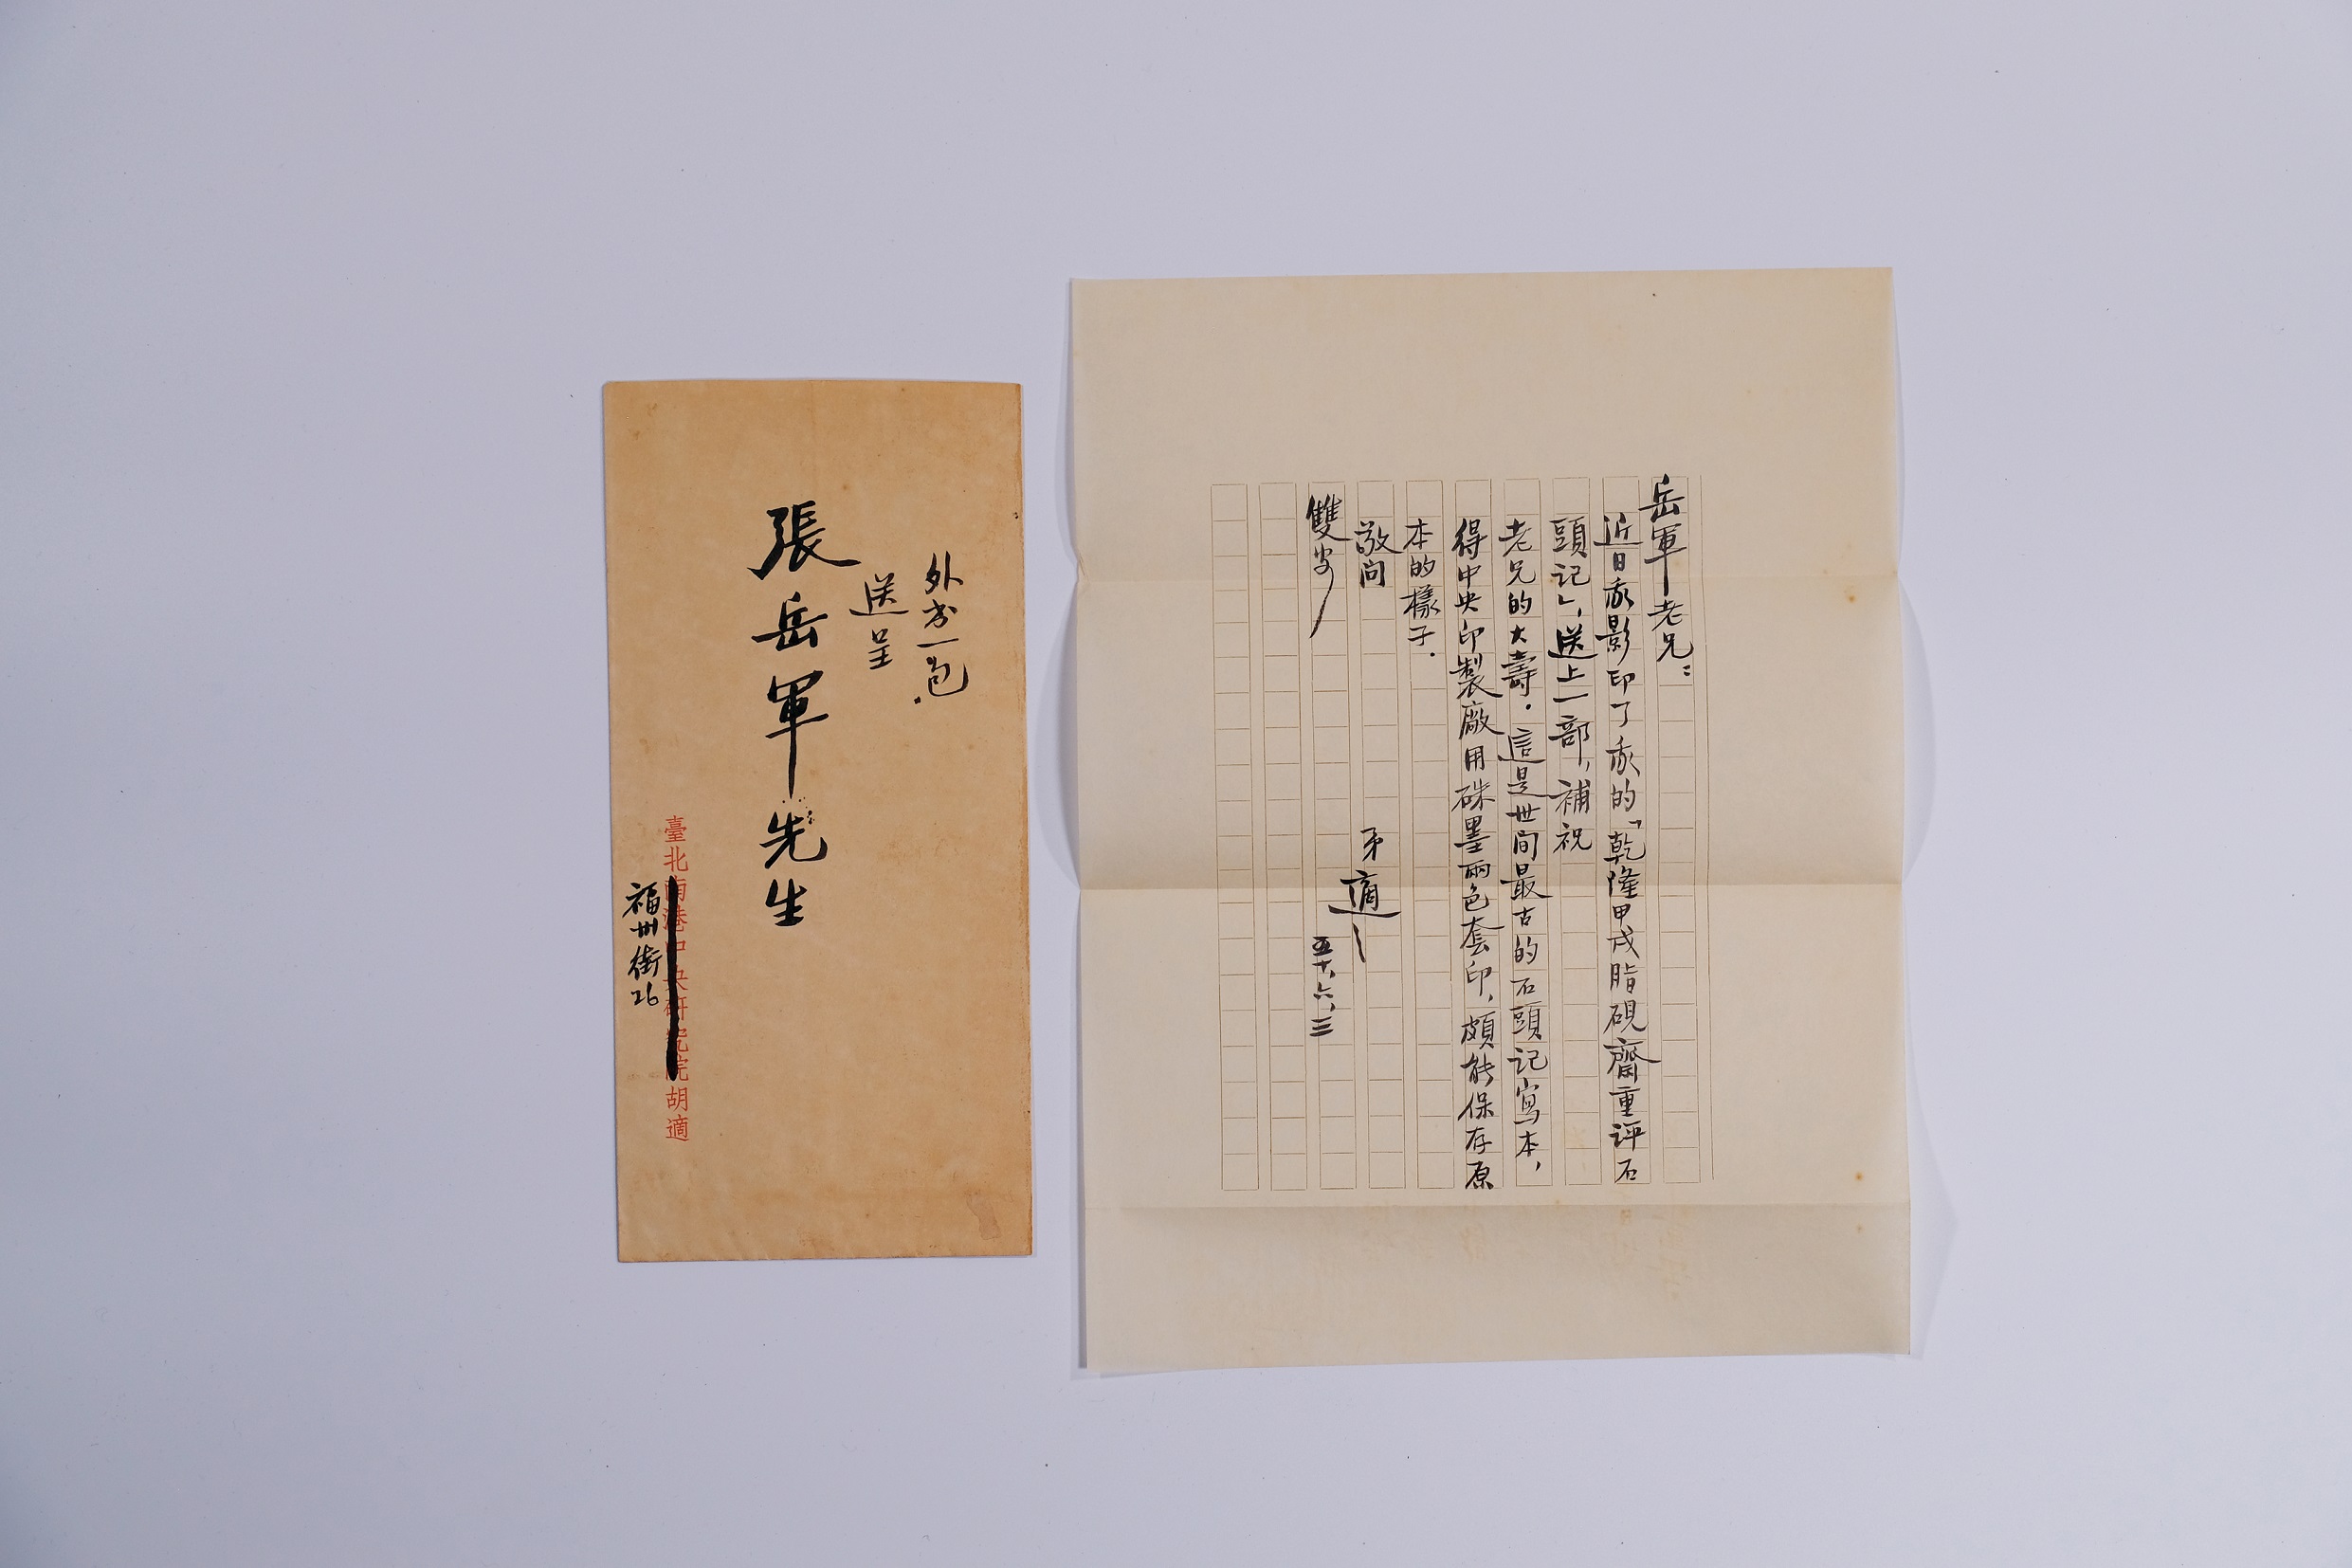 外書一包.
送呈
張岳軍先生
臺北南港中央研究院胡適
福州街26
岳軍老兄:
近日我影印了我的「乾隆甲戌脂硯齋重評石
頭記」,送上一部,補祝
老兄的大壽.這是世間最古的石頭記寫本,
得中央印製廠用硃墨兩色套印,頗能保存原
本的樣子.
敬问
雙安
弟適
五十,六,三